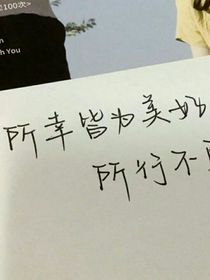 100次>
th You
所幸皆为美好
所行不